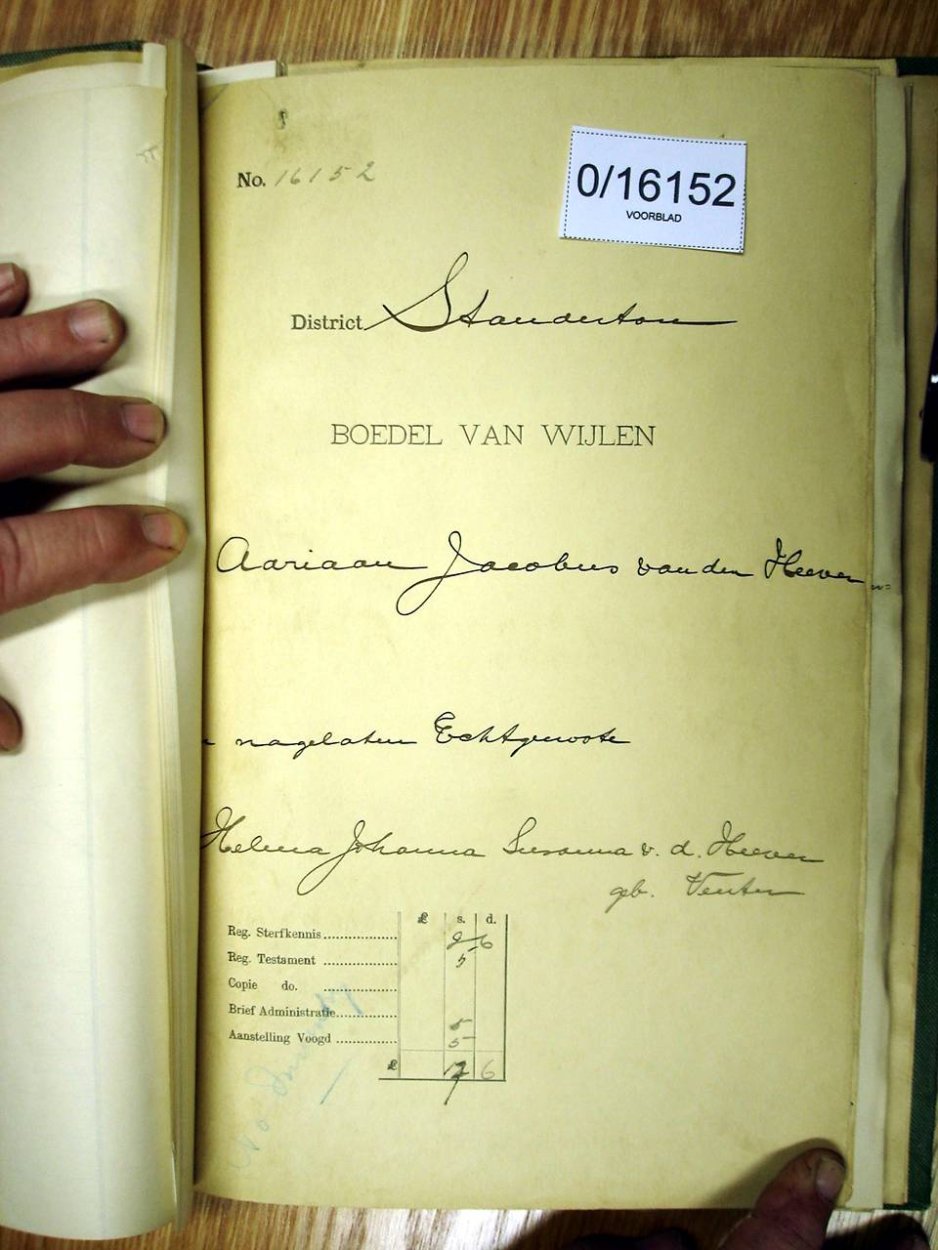 No. 16152
0/16152
VOORBLAD
District Standerton
BOEDEL VAN WIJLEN
Aariaan Jacobus van den Heever
nagelaten Echtgenoote
Helena Johanna Susanna v. d. Heever
geb. Venter
£ s. d.
Reg. Sterfkennis 2 6
Reg. Testament 5
Copie do.
Brief Administratie 5
Aanstelling Voogd 5
£ 17 6